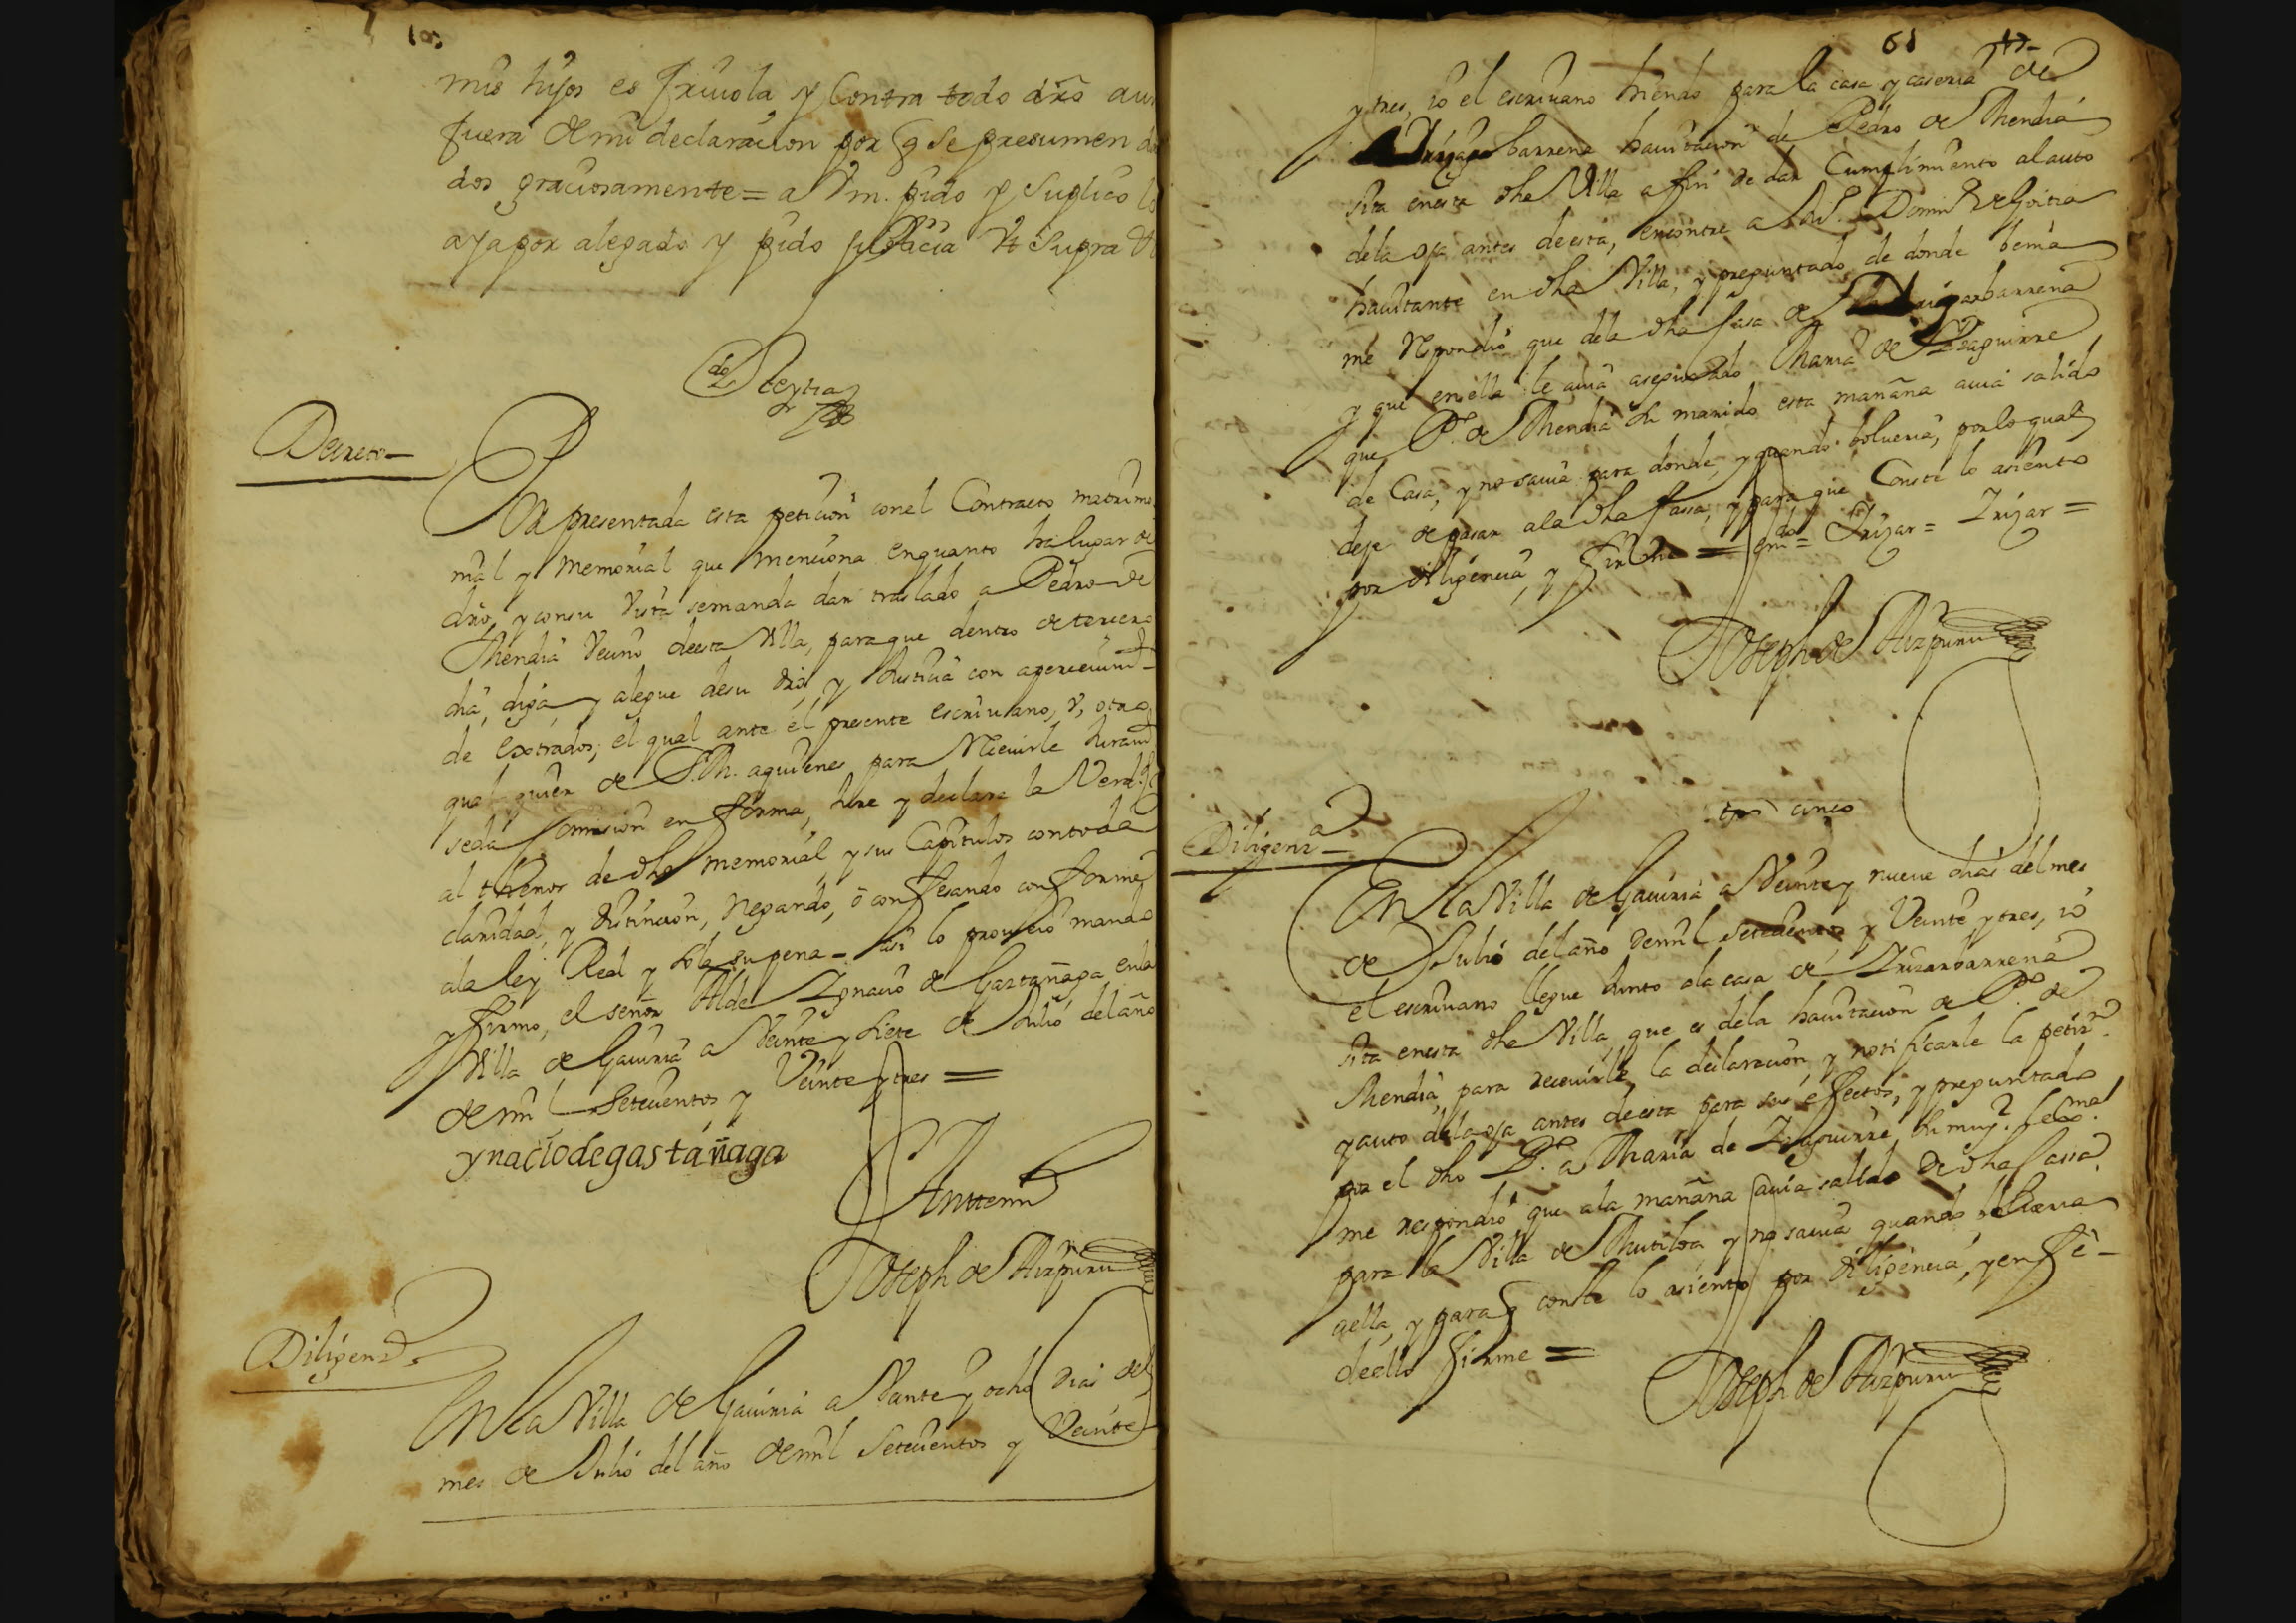 mis hijos es friuola y Contra todo dro aun
fuera de mi declaracion por q se presumen da
dos graciosamente = a Vm. pido y suplico lo
aya por alegado y pido justicia Vt Supra
Decreto
Por presentada esta peticion con el Contracto matrimo
nial y memorial que menciona en quanto ha lugar de
dro, y con su vista se manda dar traslado a Pedro de
Mendia Vecino de esta Villa, para que dentro de tercero
dia, diga y alegue de su dro, y Justicia con aperceuim
de Estrados; el qual ante el presente escriuano, v, otro
qual quier de S.M. a quienes para Reciuirle Juramto
se da Comision en forma, Jure y declare la Verdad
al thenor de dho memorial, y sus Capitulos con toda
claridad, y distincion, Negando, o confesando conforme
a la ley Real y so la su pena = Asi lo proueio mando
y firmo, el señor Alde Ignacio de Gastañaga en la
Villa de Gauiria a Veinte y siete de Julio del año
de mil Setecientos y Veinte y tres =
ynaciodegastañaga
Antte mi
Joseph de Aizpuru
Diligena
En la Villa de Gauiria a Veinte y ocho dias del
mes de Julio del año de mil Setecientos y Veinte
61
y tres, io el escriuano hiendo para la casa y caseria de
barrena hauitacion de Pedro de Mendia
sita en esta dha Villa a fin de dar Cumplimiento al auto
de la oja antes de esta, encontre a Domin de Goitia
hauitante en dha Villa, y preguntado de donde benia
me Respondio que de la dha Casa de Irizarbarrena
y que en ella le auia asegurado Maria de Izaguirre
que P.o de Mendia su marido esta mañana auia salido
de Casa, y no sauia para donde, y quando bolueria, por lo qual
deje de pasar a la dha Cassa, y para que Conste lo asiento
por diligencia, y firme = emdo = Irizar = Irizar =
Joseph de Aizpuru
cinco
Diligena
En la Villa de Gauiria a Veinte y nueue dias del mes
de Julio del año de mil Setecientos y Veinte y tres, io
el escriuano llegue Junto a la casa de Irizarbarrena
sita en esta dha Villa, que es de la hauitacion de P.o de
Mendia, para reciuirle la declaracion, y notificarle la petizn
y auto de la oja antes de esta para sus effectos, y preguntado
por el dho P.o a Maria de Izaguirre su muger lexma
me respondio que a la mañana auia salido de dha Cassa
para la Villa de Mutiloa y no sauia quando bolueria
a ella, y para q conste lo asiento por diligencia, y en fe
de ello firme =
Joseph de Aizpuru